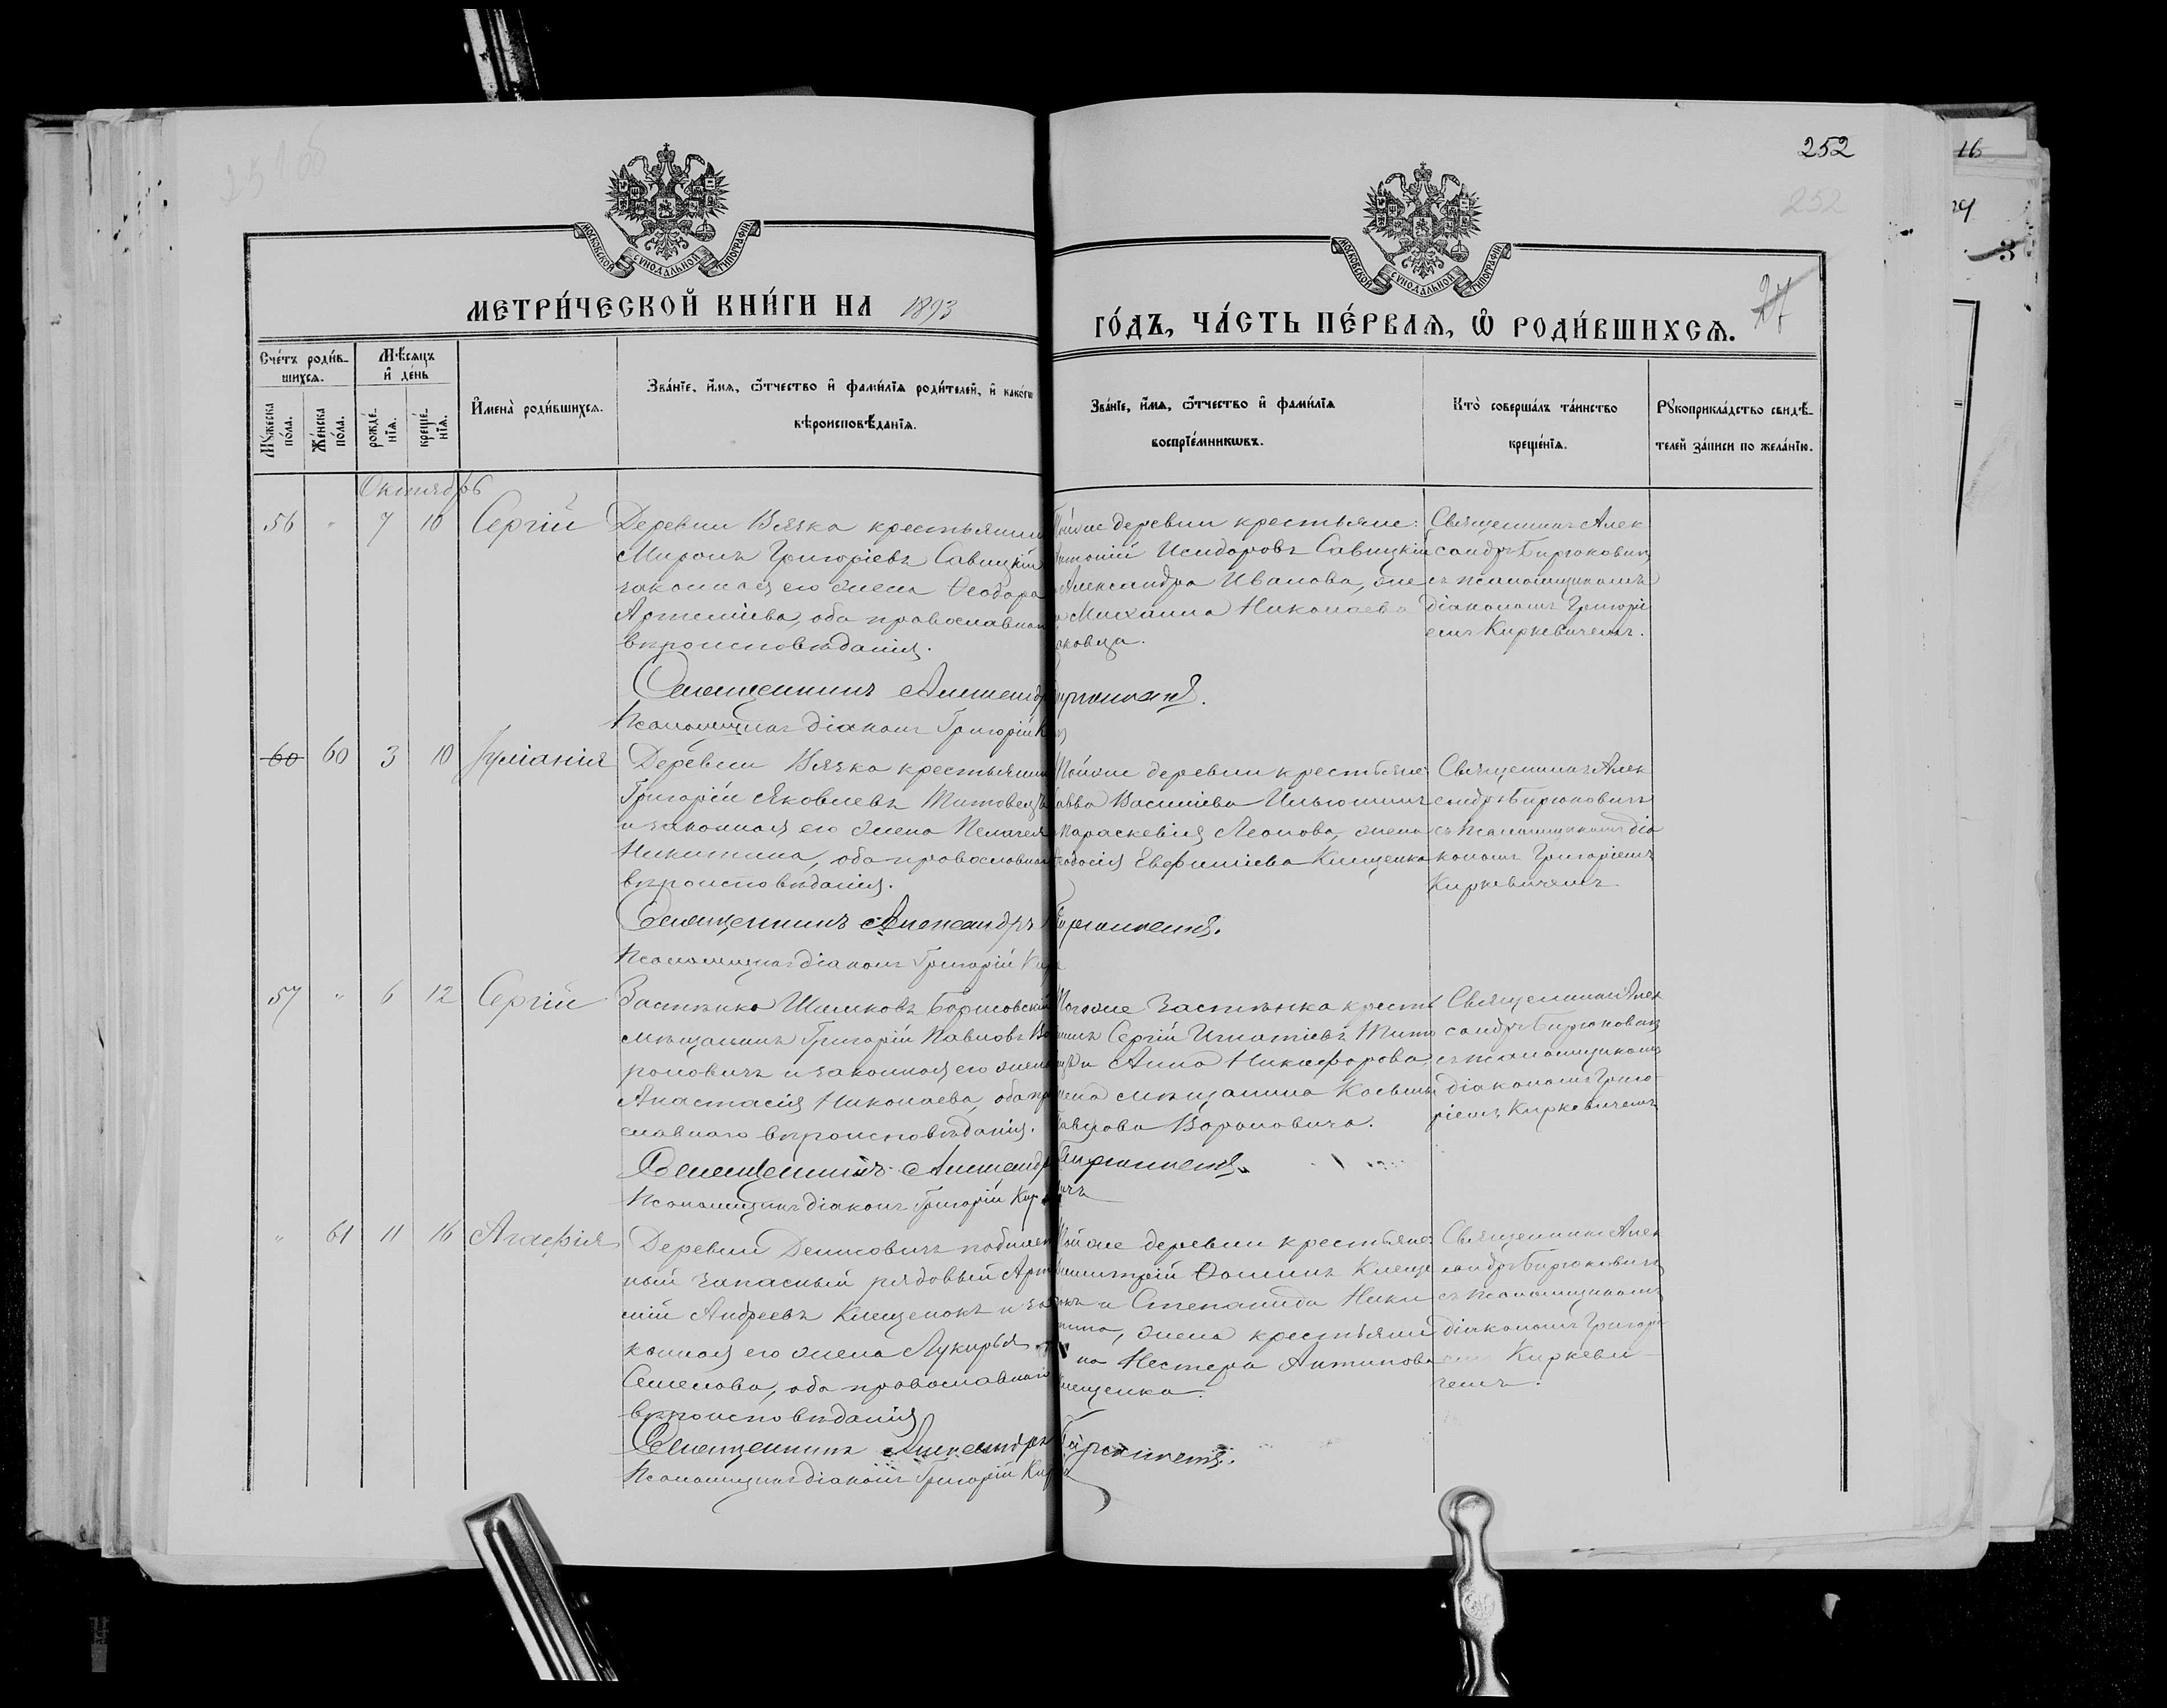 251 об
252
16
252
МОСКОВСКОЙ СУНОДАЛЬНОЙ ТИПОГРАФИИ
МОСКОВСКОЙ СУНОДАЛЬНОЙ ТИПОГРАФИИ
МЕТРИ́ЧЕСКОЙ КНИ́ГИ НА 1893
ГО́ДЪ, ЧА́СТЬ ПЕ́РВАЯ, Ѡ҆ РОДИ́ВШИХСЯ. 27
Сче́тъ роди́в-
шихся.
Мѣ́сяцъ
и҆ де́нь
Мꙋ́жеска по́ла.
Же́нска по́ла.
рожде́-нїѧ.
креще́-нїѧ.
И҆мена̀ роди́вшихсѧ.
Зва́нїе, и҆́мѧ, ѻ҆́тчество и҆ фами́лїѧ роди́телей, и҆ како́гѡ
вѣроисповѣ́данїѧ.
Зва́нїе, и҆́мѧ, ѻ҆́тчество и҆ фами́лїѧ
воспрїе́мникѡвъ.
Кто̀ соверша́лъ та́инство
креще́нїѧ.
Рꙋкоприкла́дство свидѣ́-
телей за́писи по жела́нїю.
Октябрь
56 " 7 10 Сергій
Деревни Вязка крестьянин
Миронъ Григоріевъ Савицкій
законная его жена Ѳеодора
Артеміева, оба православнаго
вѣроисповѣданія.
Священникъ Александръ
Псаломщикъ діаконъ Григорій
Тойже деревни крестьяне:
Антоній Исидоровъ Савицкій
Александра Иванова, жена
Михаила Николаева
Бирюковичъ.
Священникъ Алек
сандръ Бирюковичъ
съ псаломщикомъ
діакономъ Григорі
емъ Киркевичемъ.
60 60 3 10 Іуліанія
Деревни Вязка крестьянин
Григорій Яковлевъ Титовецъ
и законная его жена Пелагея
Никитина, оба православнаго
вѣроисповѣданія.
Священникъ Александръ
Псаломщикъ діаконъ Григорій
Тойже деревни крестьяне
Савва Васильева
Параскевія Леонова, жена
Ѳеодосія Евфиміева Клещенка
Бирюковичъ.
Священникъ Алек
сандръ Бирюковичъ
съ псаломщикомъ діа
кономъ Григоріемъ
Киркевичемъ
57 " 6 12 Сергій
Застѣнка Борисовскій
мѣщанинъ Григорій Павловъ Во
роновичъ и законная его жена
Анастасія Николаева, оба пра
славнаго вѣроисповѣданія.
Священникъ Александръ
Псаломщикъ діаконъ Григорій Кирке
Тогоже застѣнка кресть
янинъ Сергій Игнатіевъ Тито
вецъ и Анна Никифорова,
жена мѣщанина Косьмы
Павлова Вороновича.
Бирюковичъ.
вичъ
Священникъ Алек
сандръ Бирюковичъ
съ псаломщикомъ
діакономъ Григо-
ріемъ Киркевичемъ
" 61 11 16 Агафія
Деревни Денисовичъ
ный запасный рядовый Арте
мій Андреевъ Клещенокъ и за
конная его жена Лукирья
Семенова, оба православнаго
вѣроисповѣданія
Священникъ Александръ
Псаломщикъ діаконъ Григорій Кирке
Тойже деревни крестьяне
Димитрій Ѳоминъ Клеще
нокъ и Степанида Ники
тина, жена крестьяни
на Нестера Антипова
Клещенка.
Бирюковичъ.
Священникъ Алек
сандръ Бирюковичъ
съ псаломщикомъ
діакономъ Григорі
емъ Киркеви-
чемъ.